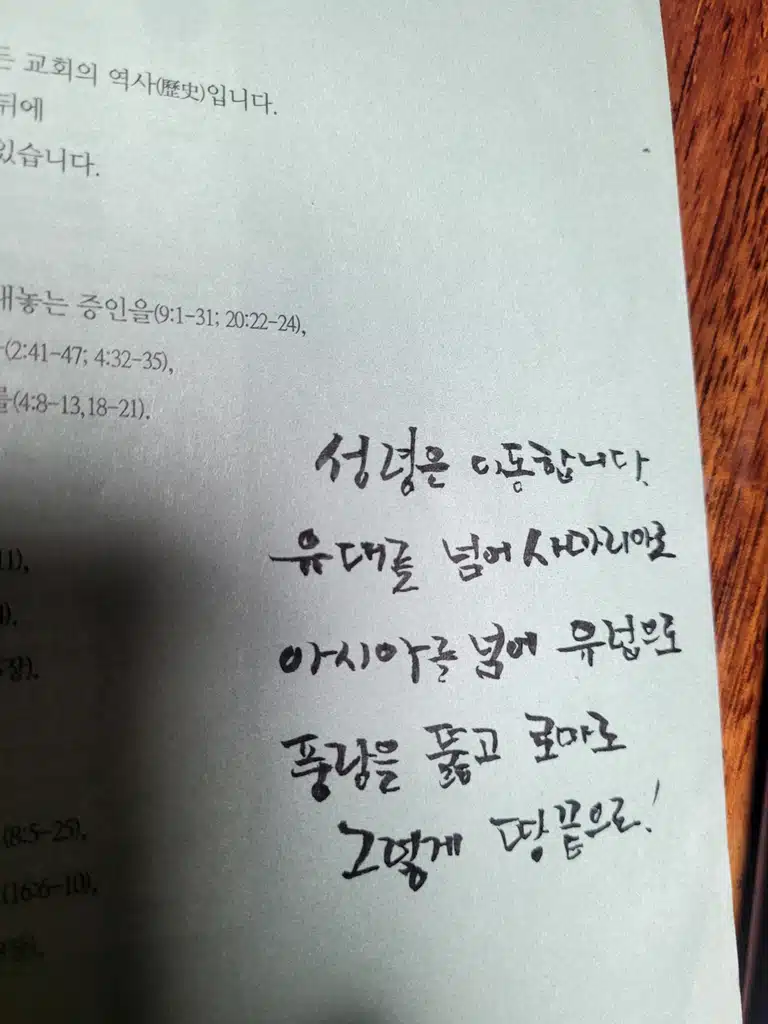 든 교회의 역사(歷史)입니다.
뒤에
있습니다.
내놓는 증인을(9:1-31; 20:22-24),
(2:41-47; 4:32-35),
를(4:8-13,18-21).
성령은 이동합니다.
유대를 넘어 사마리아로
아시아를 넘어 유럽으로
풍랑을 뚫고 로마로
그렇게 땅끝으로!
11),
장),
(8:5-25),
(16:6-10),